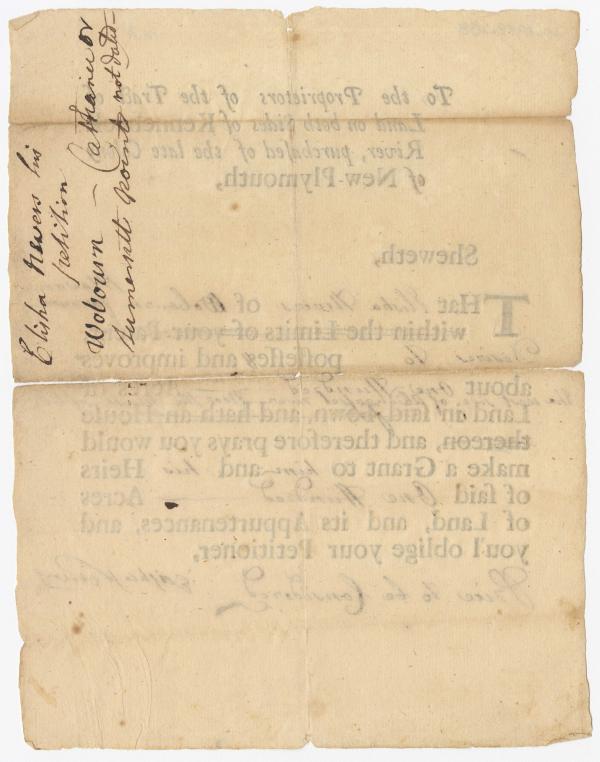 Elisha Nevers his
petition
Wobourn — Cathance or
Sumersett point not dated—
To the Proprietors of the Tract of
Land on both Sides of Kennebeck
River, purchased of the late
of New-Plymouth,
Sheweth,
THat Elisha Nevers of
within the Limits of your
possesses and improves
about one Hundred Acres
Land in said Town, and hath an House
thereon, and therefore prays you would
make a Grant to him and his Heirs
of said One Hundred Acres
of Land, and its Appurtenances, and
you'l oblige your Petitioner,
Price to be Considered Elisha Nevers